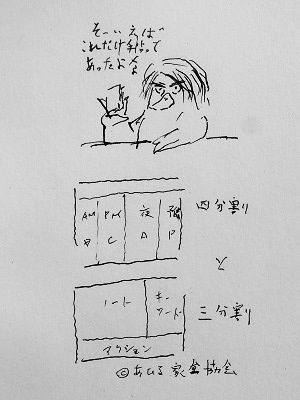 そーいえば
これだけ手帖って
あったよなぁ
AM PM 夜 予備
P C A P
四分割り
と
ノート キーワード
三分割り
アクション
©あひる家金協会